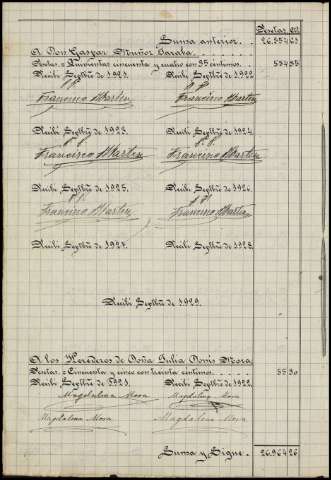 Pesetas Cts
Suma anterior. 26.554,63
A Don Gaspar Muñoz
Pesetas = Quinientas cincuenta y cuatro con 35 céntimos. 554,35
Recibí Septbre de 1921. Recibí Septbre de 1922
P. P. P. P.
Francisco Martin Francisco Martin
Recibí Septbre de 1923. Recibí Septbre de 1924.
P. P. P. P.
Francisco Martin Francisco Martin
Recibí Septbre de 1925. Recibí Septbre de 1926.
P. P. P. P.
Francisco Martin Francisco Martin
Recibí Septbre de 1927. Recibí Septbre de 1928.
Recibí Septbre de 1929.
A los Herederos de Doña Julia Mora
Pesetas = Cincuenta y cinco con treinta céntimos. 55,30
Recibí Septbre de 1921. Recibí Septbre de 1922
Magdalena Mora Magdalena Mora
Magdalena Mora Magdalena Mora
Suma y Sigue. 26.964,26